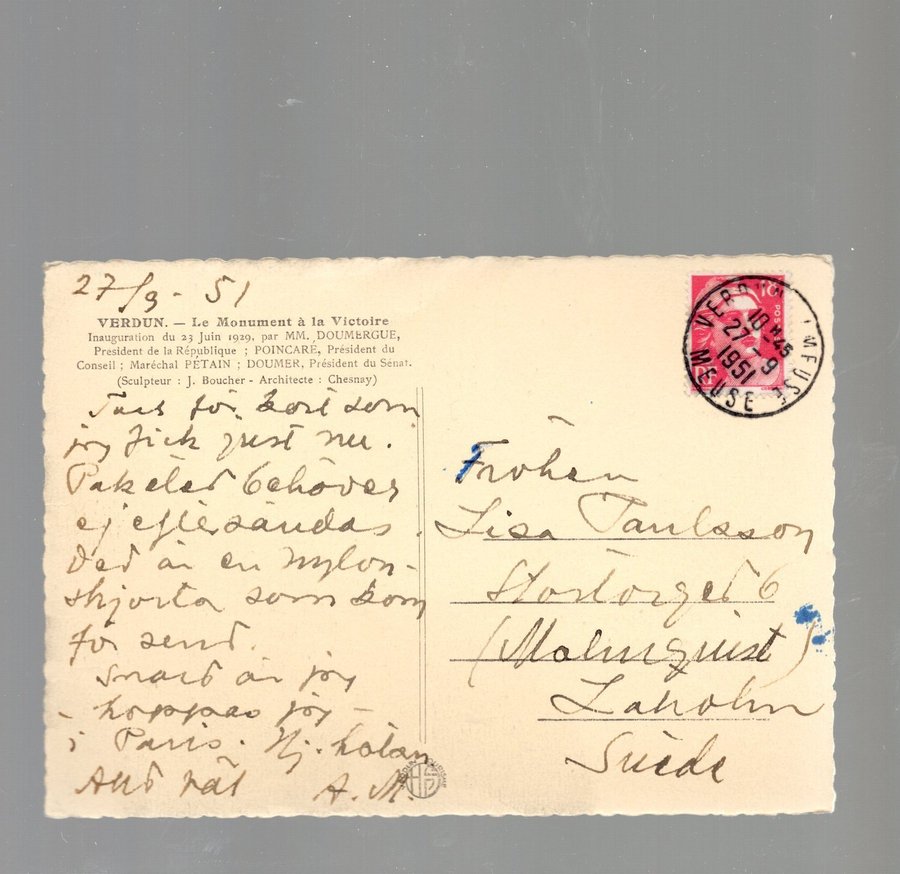 27/9 - 51
VERDUN. — Le Monument à la Victoire
Inauguration du 23 Juin 1929, par MM. DOUMERGUE,
President de la République ; POINCARE, Président du
Conseil ; Maréchal PÉTAIN ; DOUMER, Président du Sénat.
(Sculpteur : J. Boucher - Architecte : Chesnay)
Tack för kort som
jag fick just nu.
Paketet behöver
ej eftersändas.
Det är en nylon-
skjorta som kom
för sent.
Snart är jag
- hoppas jag -
i Paris. Hj. hälsn
Allt väl A. M.
10
POSTES
RF
VERDUN
10 H45
27 - 9
1951
MEUSE
MEUSE
Fröken
Lisa Paulsson
Stortorget 6
(Malmquist)
Laholm
Suède